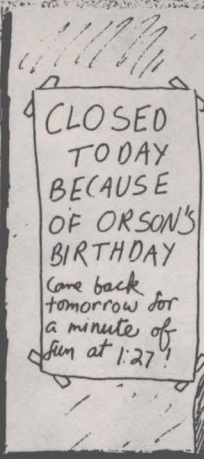 CLOSED
TODAY
BECAUSE
OF ORSON'S
BIRTHDAY
Come back
tomorrow for
a minute of
fun at 1:27!